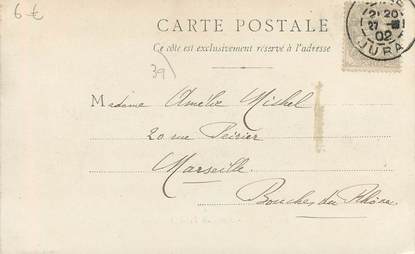 6 €
CARTE POSTALE
Ce côté est exclusivement réservé à l'adresse
39
Madame Amélie Michel
20 rue Périer
Marseille
Bouches du Rhône
20
27
02
JURA